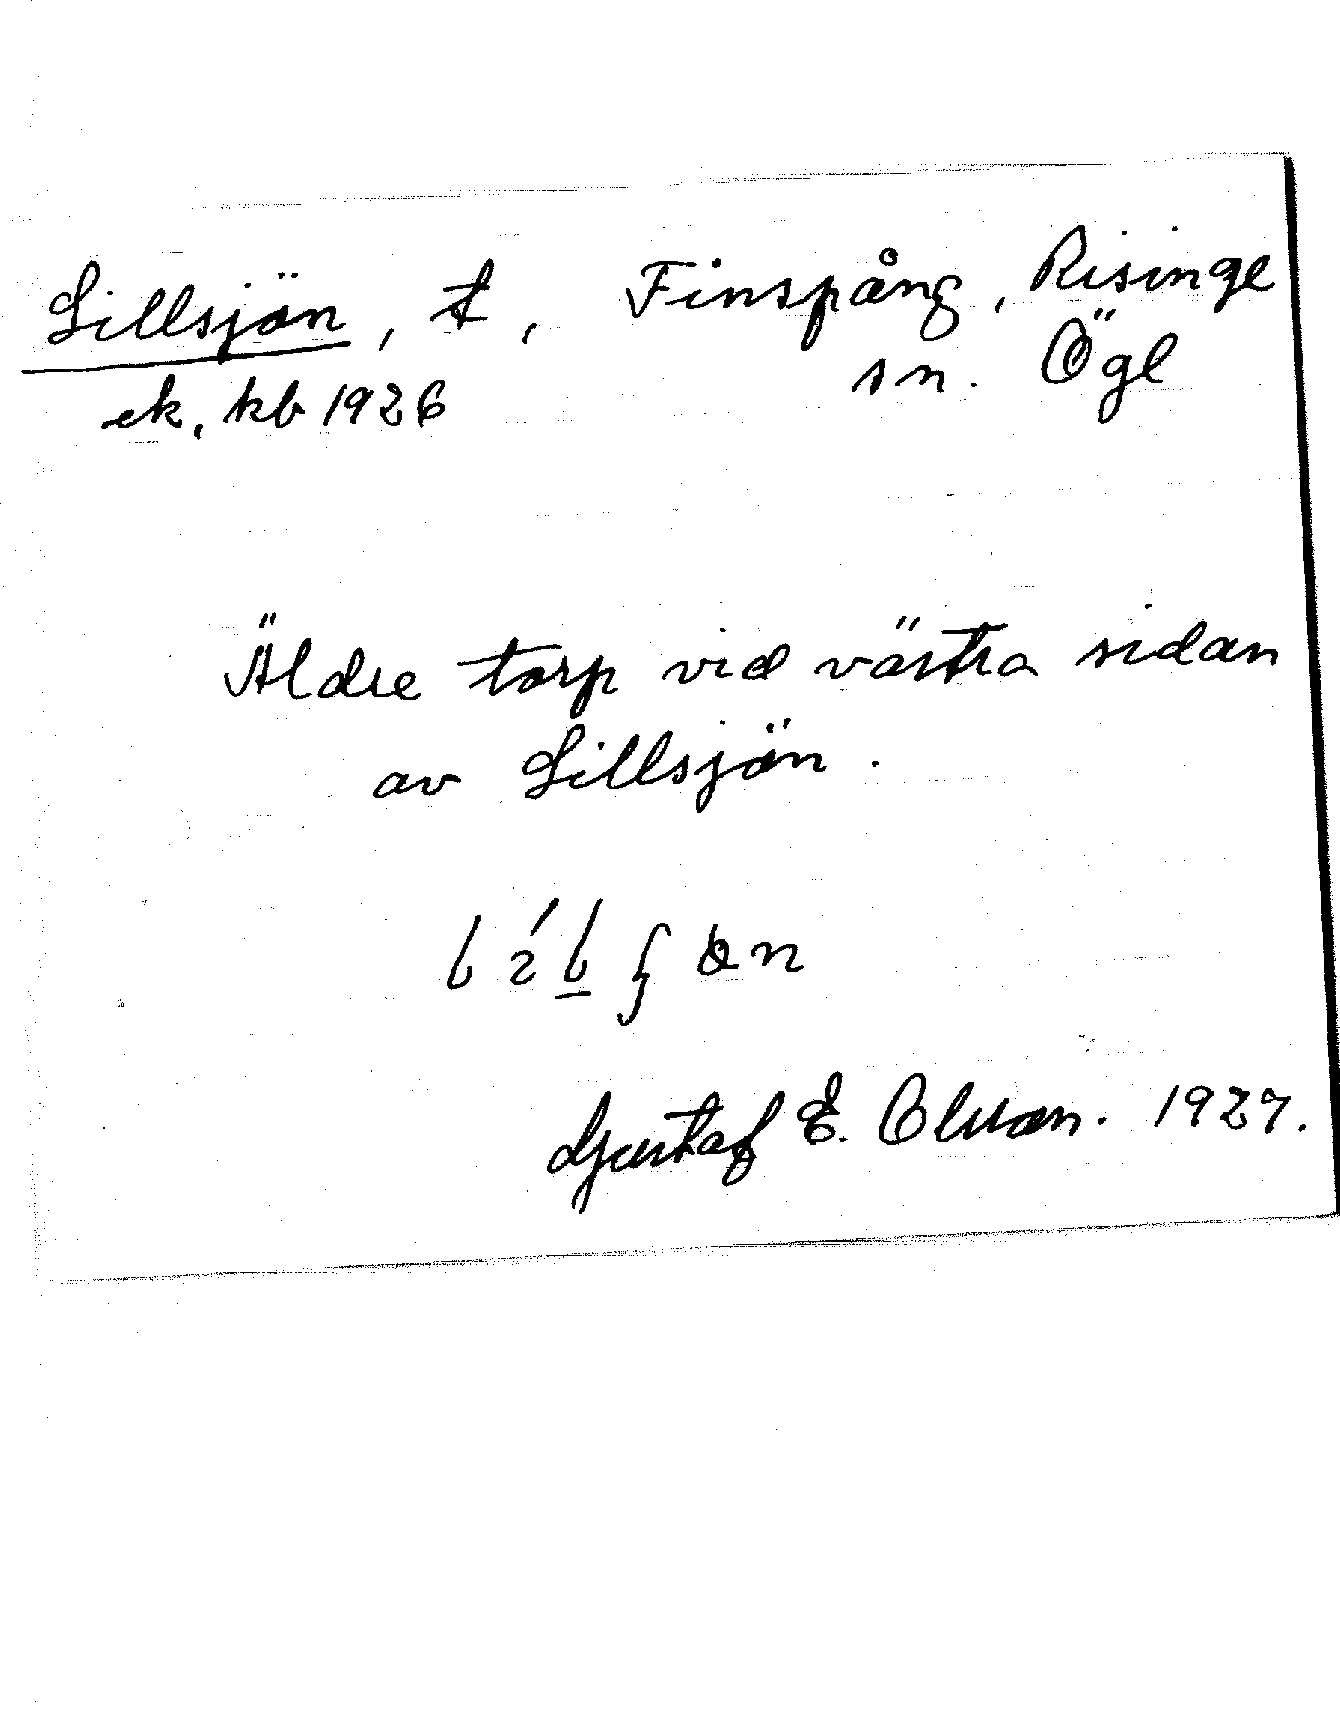 Lillsjön, t, Finspång, Risinge
ek, kb 1926 sn. Ögl
Äldre torp vid västra sidan
av Lillsjön.
Gustaf E. Olsson. 1927.